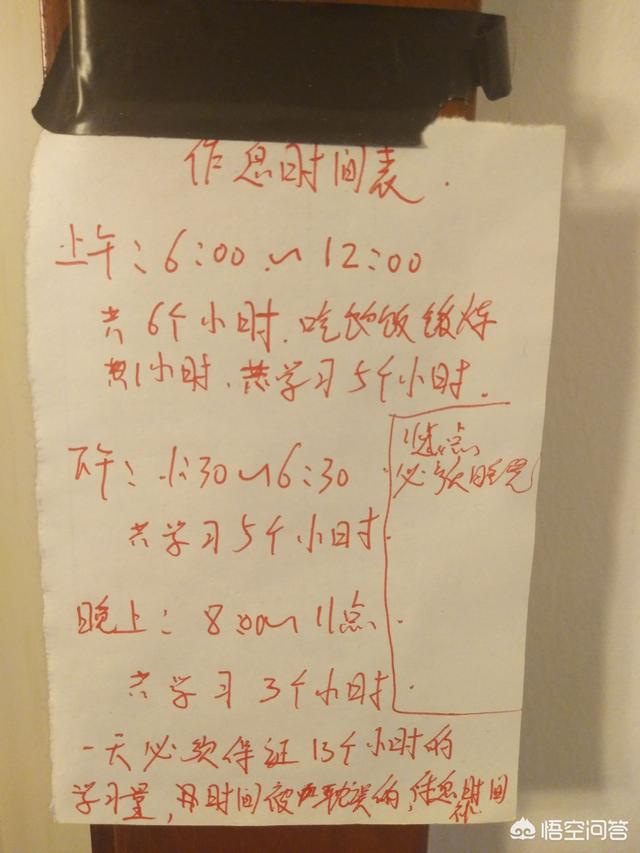 作息时间表.
上午：6:00~12:00
共6个小时.吃饭锻炼
共1小时.共学习5个小时.
11点
必须睡觉
下午：1:30~6:30
共学习5个小时.
晚上：8:00~11点.
共学习3个小时.
一天必须保证13个小时的
学习量,时间被耽误的,作息时间
悟空问答